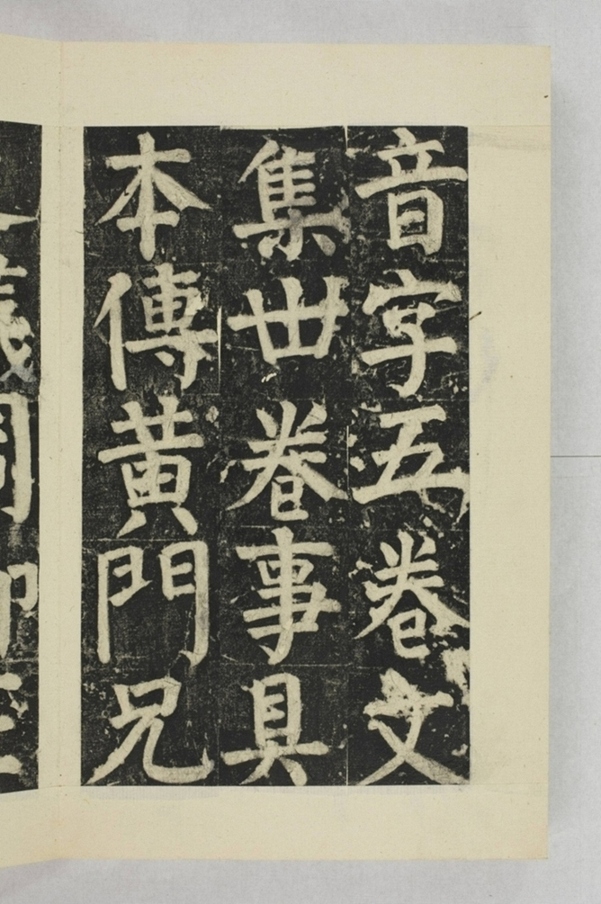 音字五卷文
集丗卷事具
本傳黄門兄